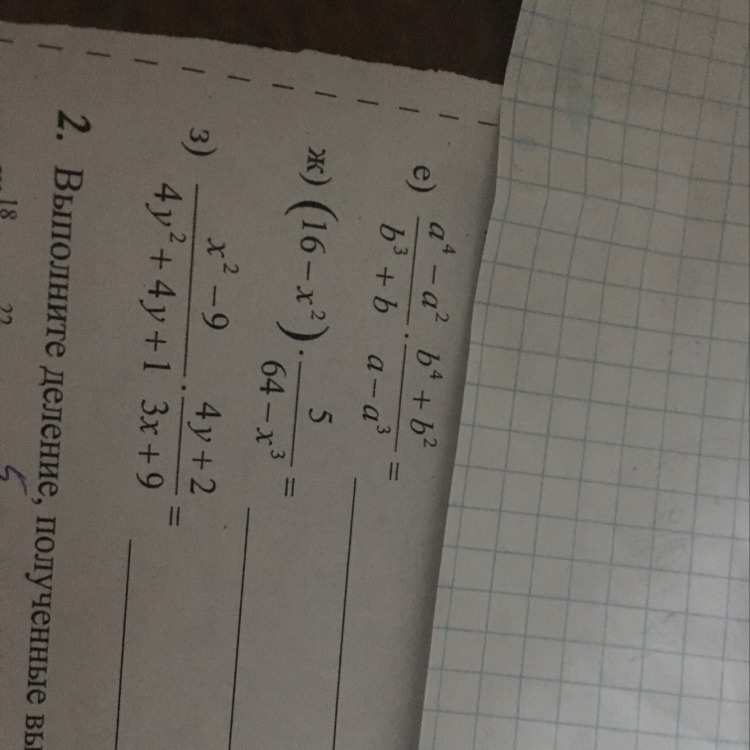 е) \frac{a^4 - a^2}{b^3 + b} \cdot \frac{b^4 + b^2}{a - a^3} =
ж) (16 - x^2) \cdot \frac{5}{64 - x^3} =
з) \frac{x^2 - 9}{4y^2 + 4y + 1} \cdot \frac{4y + 2}{3x + 9} =
2. Выполните деление, полученные
18 22